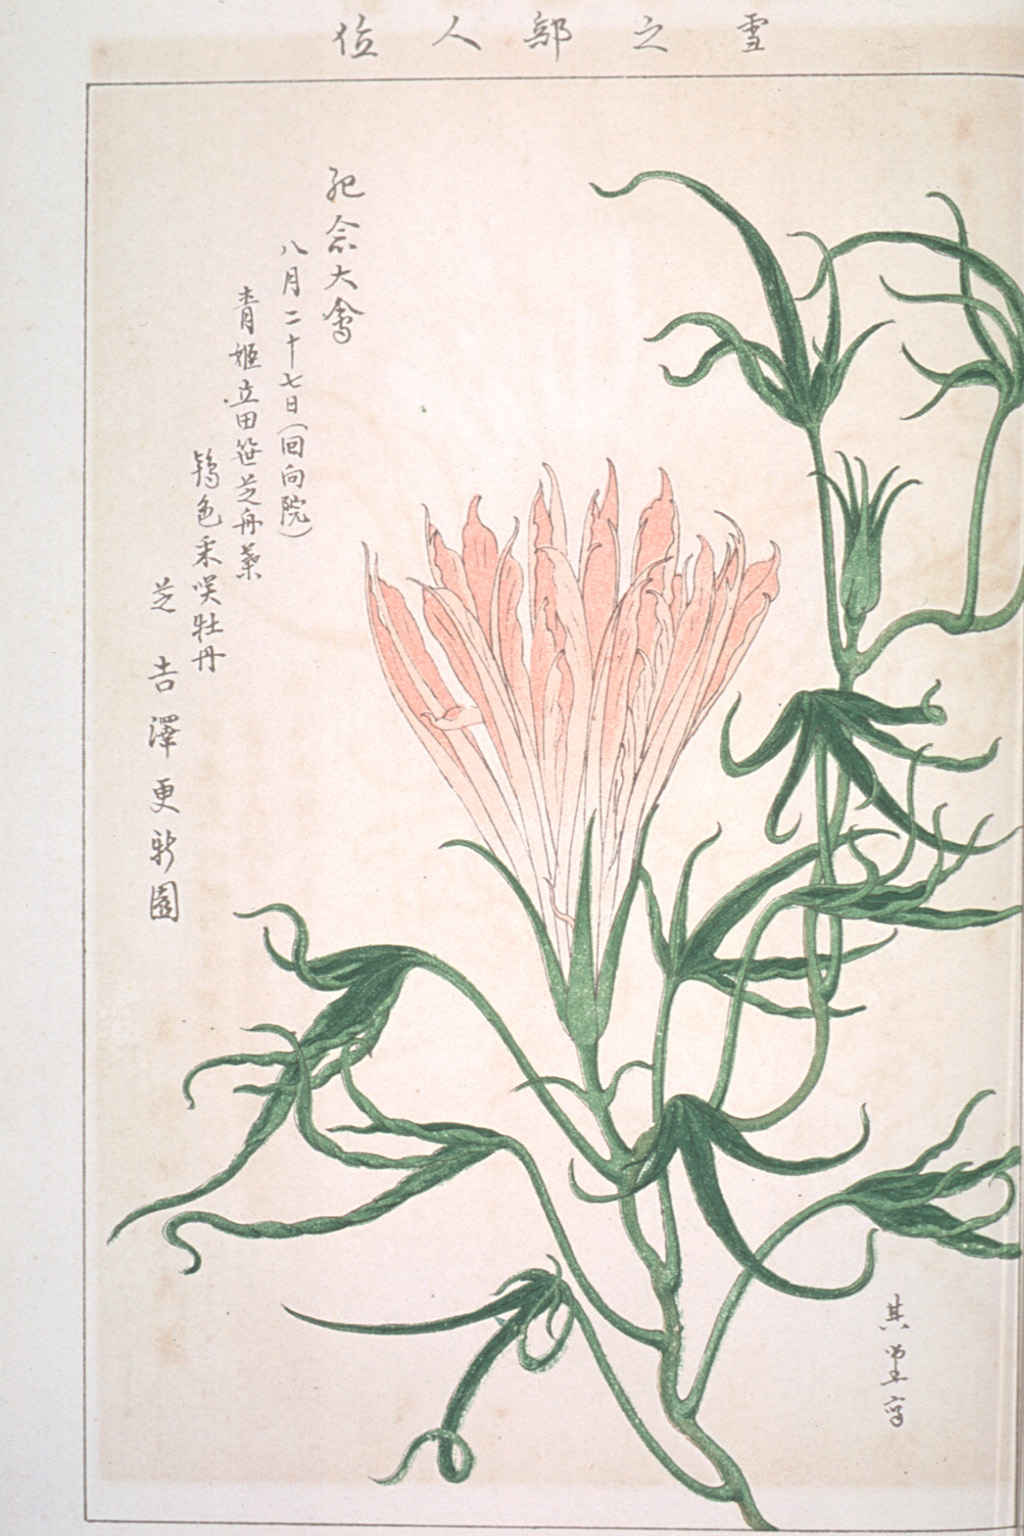 雪之部人位
紀念大會
八月二十七日(回向院)
青姫立田笹芝舟葉
鴇色采咲牡丹
芝 吉澤更新園
其堂写